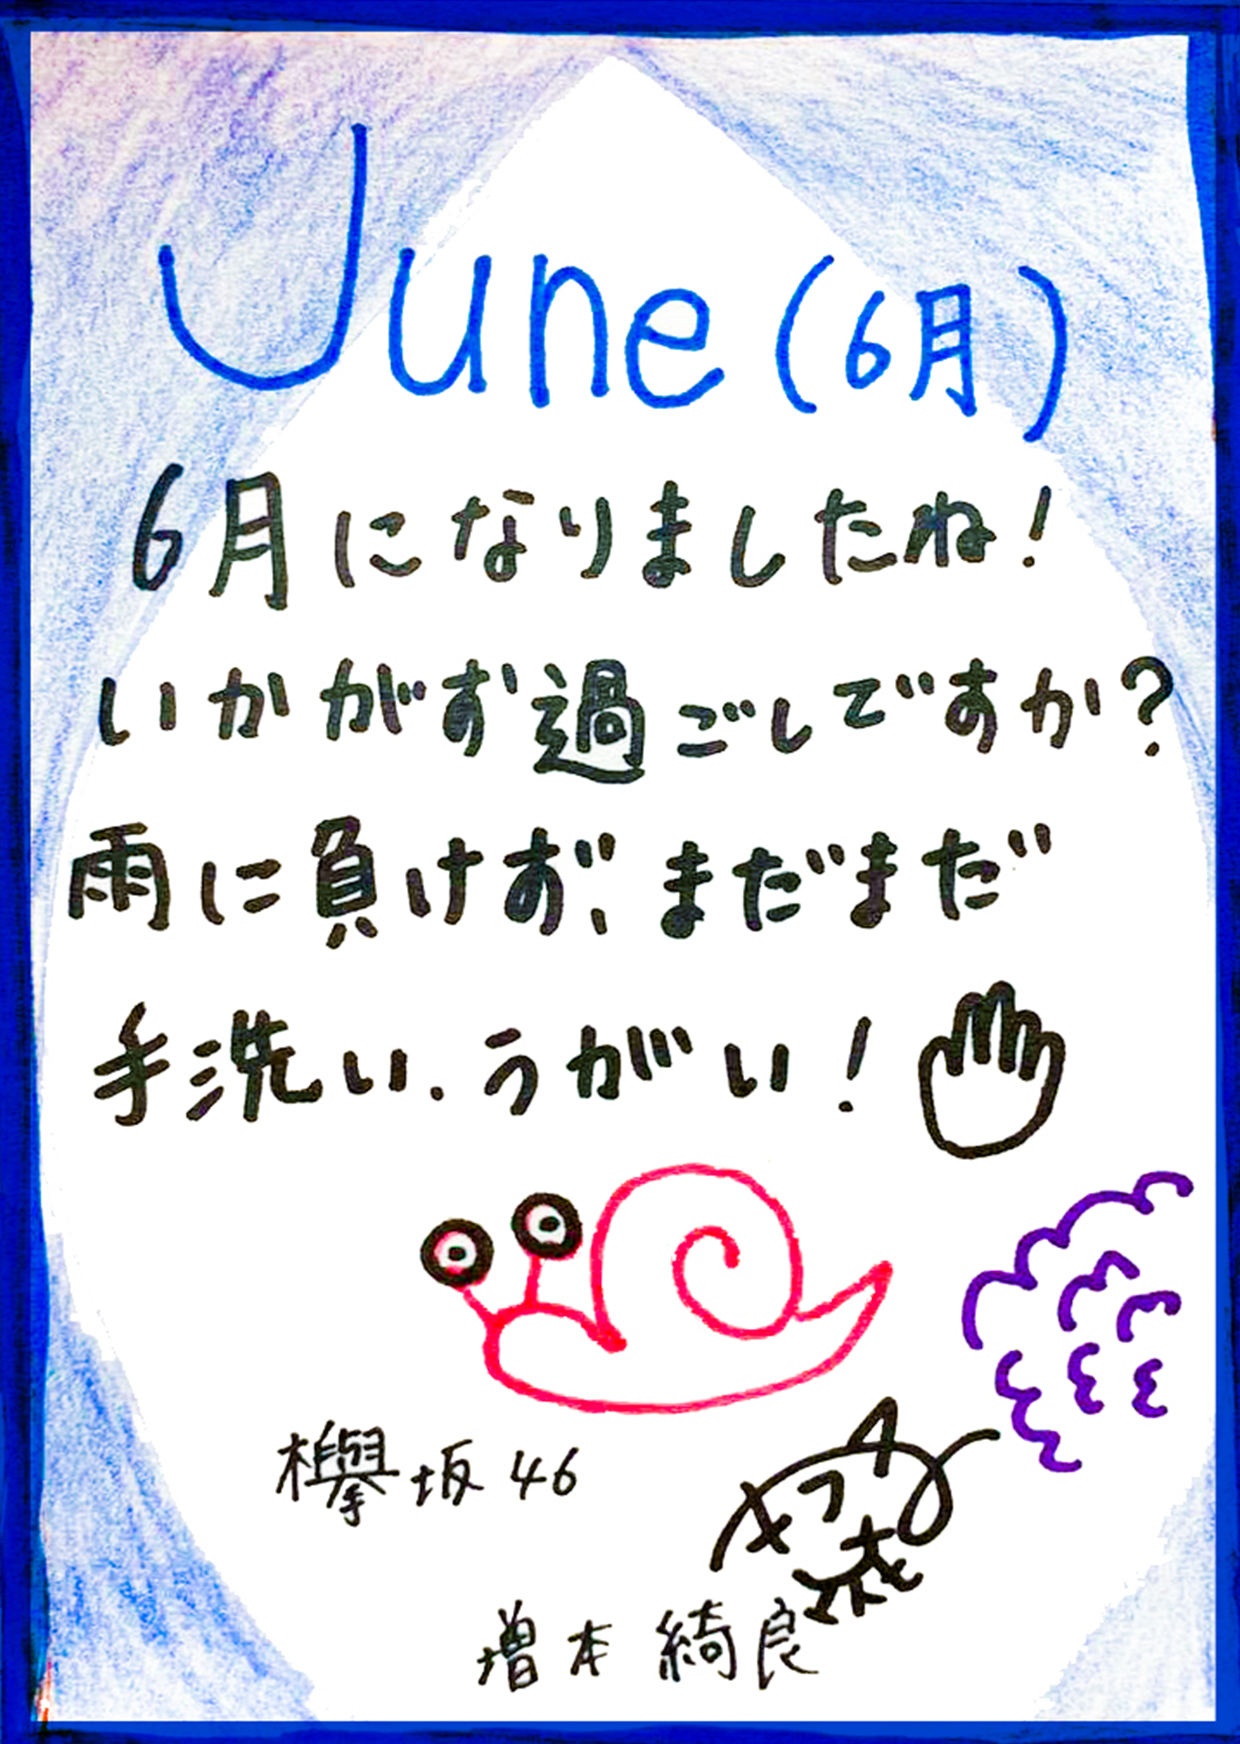 June (6月)
6月になりましたね!
いかがお過ごしですか?
雨に負けず、まだまだ
手洗い、うがい!
欅坂46
増本綺良